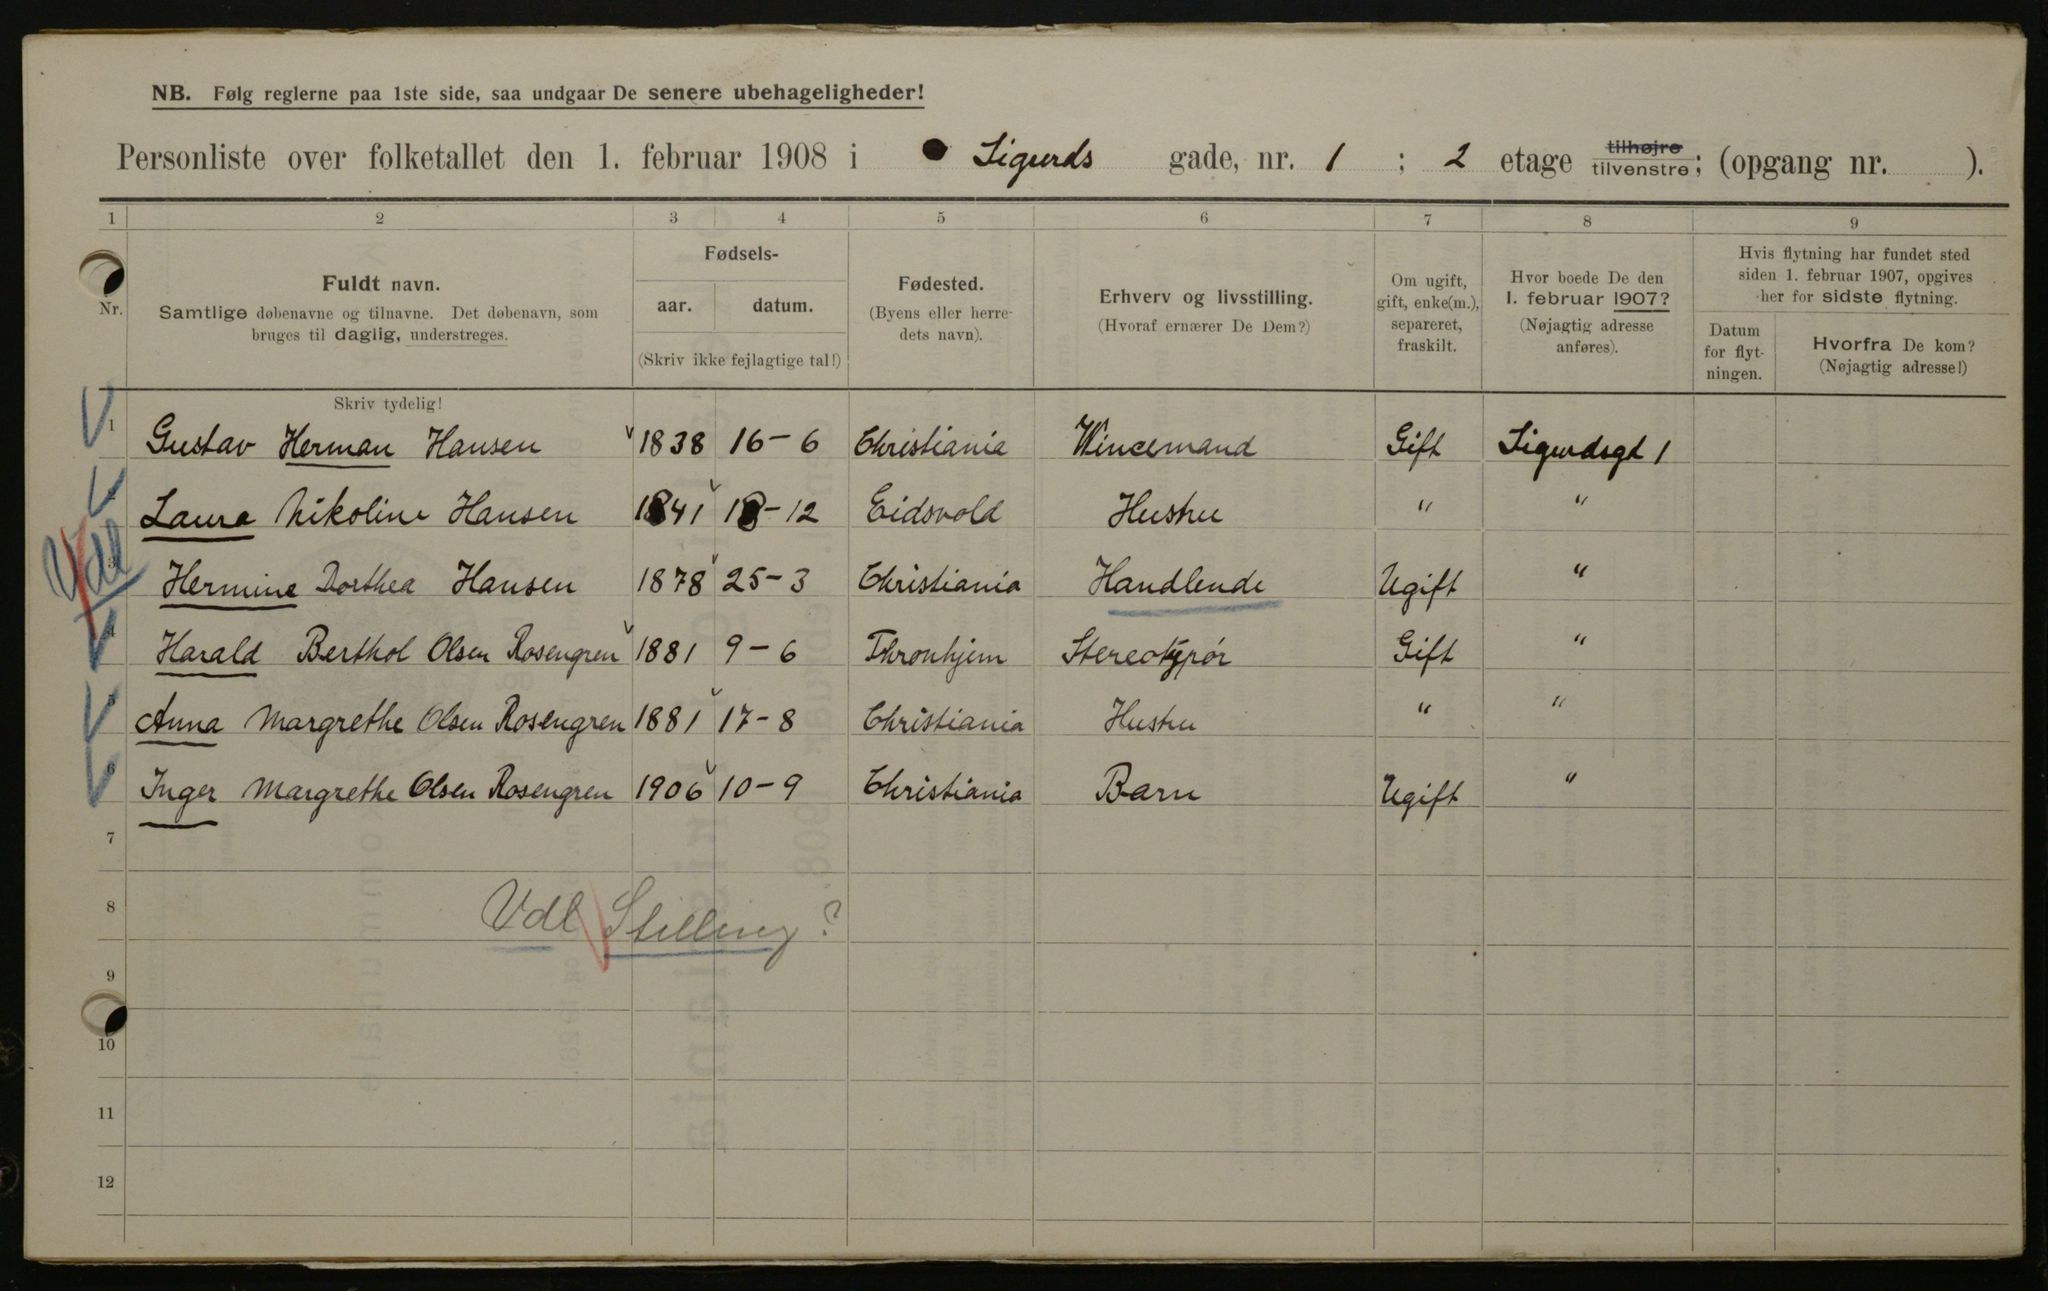 NB. Følg reglerne paa 1ste side, saa undgaar De senere ubehageligheder!
Personliste over folketallet den 1. februar 1908 i Sigurds gade, nr. 1 ; 2 etage tilhøjre tilvenstre; (opgang nr. ).
1 2 3 4 5 6 7 8 9
Nr.
Fuldt navn.
Samtlige døbenavne og tilnavne. Det døbenavn, som
bruges til daglig, understreges.
Skriv tydelig!
Fødsels-
aar. datum.
(Skriv ikke fejlagtige tal!)
Fødested.
(Byens eller herre-
dets navn).
Erhverv og livsstilling.
(Hvoraf ernærer De Dem?)
Om ugift,
gift, enke(m.),
separeret,
fraskilt.
Hvor boede De den
1. februar 1907?
(Nøjagtig adresse
anføres).
Hvis flytning har fundet sted
siden 1. februar 1907, opgives
her for sidste flytning.
Datum
for flyt-
ningen.
Hvorfra De kom?
(Nøjagtig adresse!)
1 Gustav Herman Hansen 1838 16-6 Christiania Mincemand Gift Sigurdsgd 1
2 Laura Nikoline Hansen 1841 18-12 Eidsvold Hustru " "
Vdl
3 Hermine Dorthea Hansen 1878 25-3 Christiania Handlende Ugift "
4 Harald Berthol Olsen Rosengren 1881 9-6 Thronhjem Stereotypør Gift "
5 Anna Margrethe Olsen Rosengren 1881 17-8 Christiania Hustru " "
6 Inger Margrethe Olsen Rosengren 1906 10-9 Christiania Barn Ugift "
7
8 Vdl Stilling?
9
10
11
12